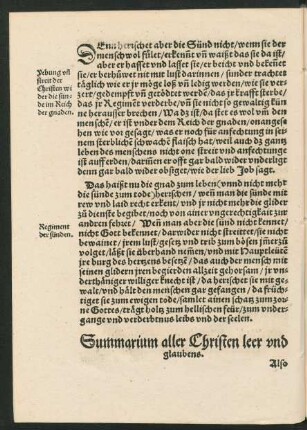 Denn herschet aber die Sünd nicht/ wenn sie der
mensch wol fület/ erkennt vñ waißt das sie da ist/
aber er hasset vnd lasset sie/ er beicht vnd bekeñet
sie/ er berhüwet nit mit lust darinnen/ sunder trachtet
täglich wie er jr möge loß vñ ledig werden/ wie sie ver-
zert/ gedempft vñ getödtet werde/ das jr krafft sterbe/
das jr Regimēt verderbe/ vñ sie nicht so gewaltig küne
herausser brechen/ Wa dz ist/ da ist es wol vm den
mensche/ er ist vnder dem Reich der gnaden/ onange-
sehen wie vor gesagt/ was er noch für anfechtung in sei-
nem sterblichē schwachē flaisch hat/ weil auch dz gantz
leben des menschens nicht one streit vnd anfechtunge
ist auff erden/ dariñen er offt gar bald wider vnderligt
denn gar bald wider obsiget/ wie der lieb Job sagt.
Vebung vñ
streit der
Christen wi
der die sün-
de im Reich
der gnaden.
Das haißt nu die gnad zum leben/ vnnd nicht mehr
die sünde zum tode herschen/ weñ man die sünde mit
rew vnd laid recht erkent/ vnd jr nicht mehr die glider
zů dienste begibet/ noch von ainer vngerechtigkait zur
andren setzet/ Weñ man aber die sünd nicht kennet/
nicht Gott bekennet/ darwider nicht streittet/ sie nicht
bewainet/ jrem lust/ gesetz vnd trib zum bösen jmerzů
volget/ läßt sie überhand nemen/ vnd mit Haupteleütē
jre burg des hertzens besetzē/ das auch der mensch mit
seinen glidern jren begierden allzeit gehorsam/ jr vn-
derthäniger williger knecht ist/ da herschet sie mit ge-
walt/ vnd hält den menschen gar gefangen/ da früch-
tiget sie zum ewigen tode/ samlet ainen schatz zum zor-
ne Gottes/ trägt holtz zum hellischen feür/ zum vnder-
gange vnd verderbtnus leibs vnd der seelen.
Regiment
der sünden.
Summarium aller Christen leer vnd
glaubens.
Also